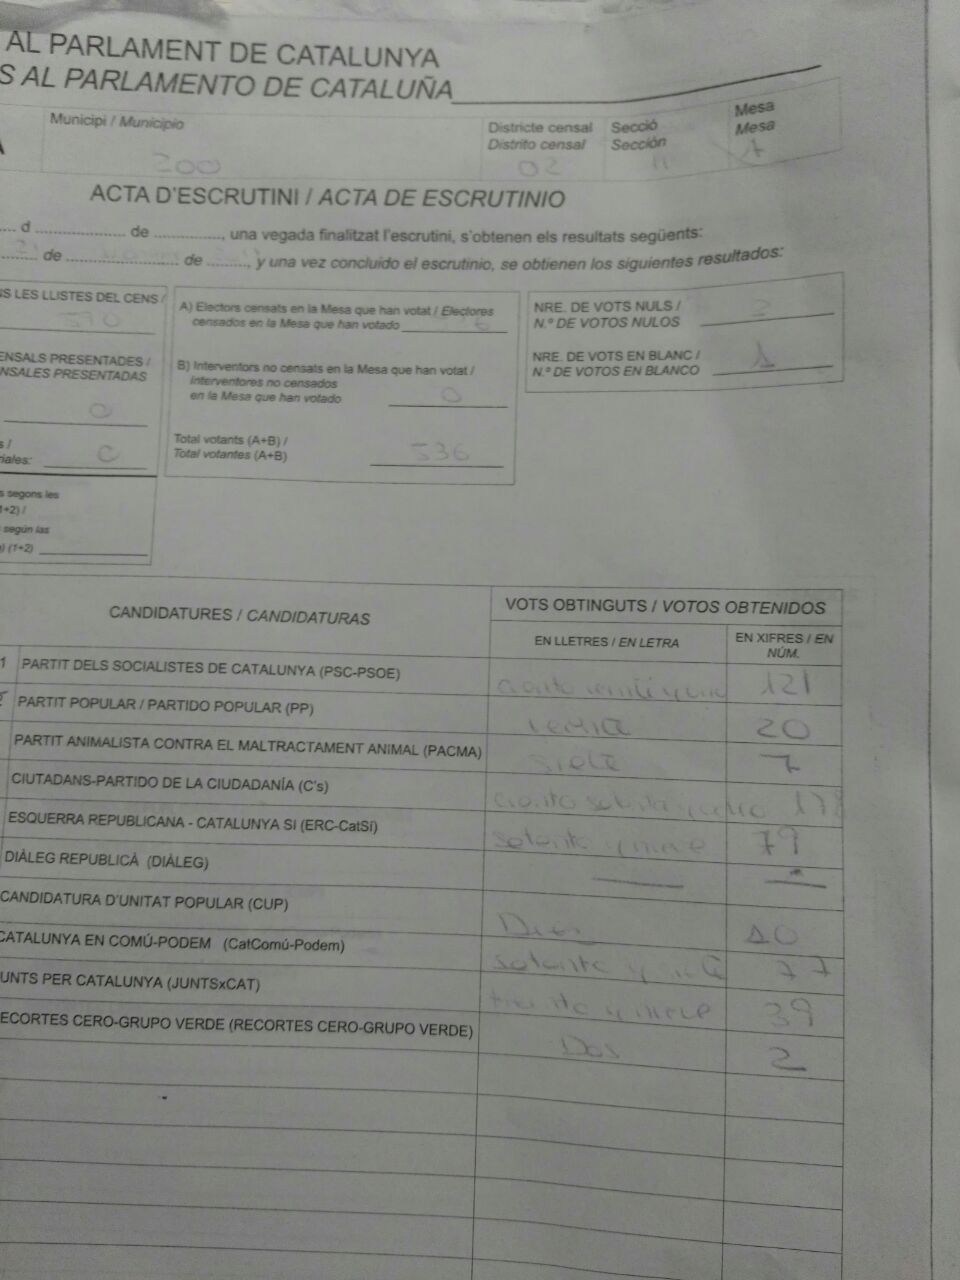 AL PARLAMENT DE CATALUNYA
S AL PARLAMENTO DE CATALUÑA
Municipi / Municipio
200
Districte censal
Distrito censal
02
Secció
Sección
11
Mesa
Mesa
A
ACTA D'ESCRUTINI / ACTA DE ESCRUTINIO
.... d .................... de ..............., una vegada finalitzat l'escrutini, s'obtenen els resultats següents:
de ......................... de .........., y una vez concluido el escrutinio, se obtienen los siguientes resultados:
NS LES LLISTES DEL CENS /
ENSALS PRESENTADES /
NSALES PRESENTADAS
0
s /
iales: 0
s segons les
1+2) /
según las
) (1+2)
A) Electors censats en la Mesa que han votat / Electores
censados en la Mesa que han votado
B) Interventors no censats en la Mesa que han votat /
Interventores no censados
en la Mesa que han votado 0
Total votants (A+B) /
Total votantes (A+B) 536
NRE. DE VOTS NULS /
N.º DE VOTOS NULOS 2
NRE. DE VOTS EN BLANC /
N.º DE VOTOS EN BLANCO 1
CANDIDATURES / CANDIDATURAS
VOTS OBTINGUTS / VOTOS OBTENIDOS
EN LLETRES / EN LETRA
EN XIFRES / EN
NÚM.
1 PARTIT DELS SOCIALISTES DE CATALUNYA (PSC-PSOE) 121
PARTIT POPULAR / PARTIDO POPULAR (PP) 20
PARTIT ANIMALISTA CONTRA EL MALTRACTAMENT ANIMAL (PACMA) siete 7
CIUTADANS-PARTIDO DE LA CIUDADANÍA (C's)
ESQUERRA REPUBLICANA - CATALUNYA SI (ERC-CatSí) setenta y nueve 79
DIÀLEG REPUBLICÀ (DIÀLEG)
CANDIDATURA D'UNITAT POPULAR (CUP) Diez 10
CATALUNYA EN COMÚ-PODEM (CatComú-Podem) setenta y siete 77
UNTS PER CATALUNYA (JUNTSxCAT) treinta y nueve 39
ECORTES CERO-GRUPO VERDE (RECORTES CERO-GRUPO VERDE) Dos 2